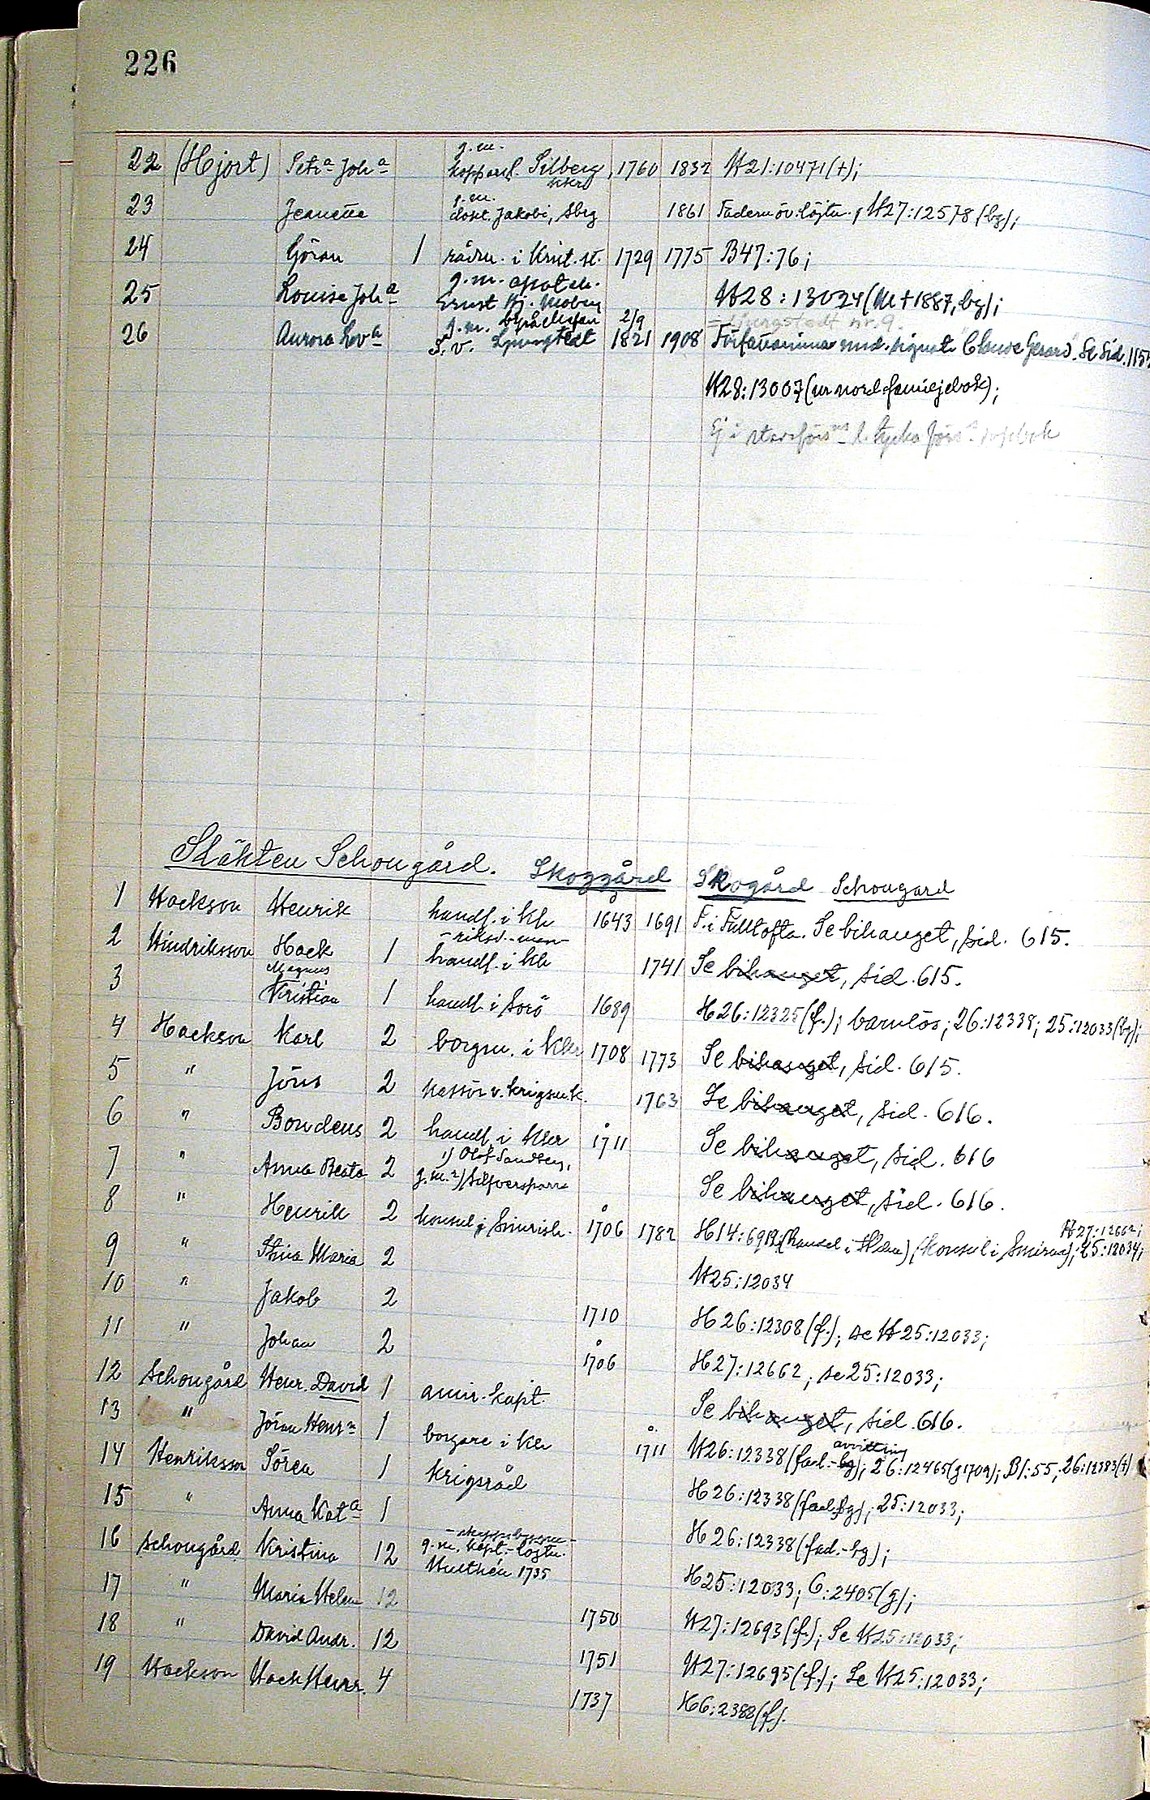 226
22 (Hjort) Petra Joha g.m. koppard. Silberg 1760 1832 H21:10471(+);
23 Jeanette g.m. dokt. Jakobi, Sbg 1861 Fadern öv.löjtn., H27:12578(bg);
24 Göran 1 rådm. i Krist.st. 1729 1775 B47:76;
25 Louise Joha g.m. apotek. Ernst Hj. Moberg H28:13024(M+1887,bg);
= Ljungstedt nr. 9.
26 Aurora Lova g.m. byråchefen S.v. Ljungstedt 2/9 1821 1908 Författarinna med. signat. Claude Gerard. Se sid. 115
H28:13007(ur nord. familjebok);
Ej i
Släkten Schougård. Skoggård Skogård Schougard
1 Hackson Henrik handl. i Khr 1643 1691 F. i Fulltofta. Se bihanget, sid. 615.
2 Hindriksson Hack 1 -riksd.-man- handl. i Khr 1741 Se bihanget, sid. 615.
3 Magnus Kristian 1 handl. i Sorö 1689 H26:12325(f.); barnlös; 26:12338; 25:12033(bg);
4 Hackson Karl 2 borgm. i Khr 1708 1773 Se bihanget, sid. 615.
5 " Jöns 2 kassör v. krigsm.k. 1763 Se bihanget, sid. 616.
6 " Bondeus 2 handl. i Khr 1711 Se bihanget, sid. 616
7 " Anna Beata 2 g.m. 1) Olof Sandberg, 2) Silfversparre Se bihanget, sid. 616.
8 " Henrik 2 konsul i Smirish. 1706 1782 H14:6912(handel i Khr) (konsul i Smirna); 25:12034; H27:12662;
9 " Stina Maria 2 H25:12034
10 " Jakob 2 1710 H26:12308(f.); se H25:12033;
11 " Johan 2 1706 H27:12662, se 25:12033;
12 Schougård Henr. David 1 amir. kapt. Se bihanget, sid. 616.
13 " Jöran Henrn 1 borgare i Khr 1711 H26:12338(fad.-bg); avvittring 26:12465(g1709); B1:55; 26:12383(+)
14 Henriksson Sören 1 krigsråd H26:12338(fad.bg); 25:12033;
15 " Anna Kata 1 H26:12338(fad.-bg);
16 Schougård Kristina 12 g.m. kapt.-löjtn. Hulthén 1735 H25:12033; 6:2405(g);
17 " Maria Helena 12 1750 H27:12693(f.); Se H25:12033;
18 " David Andr. 12 1751 H27:12695(f.); Se H25:12033;
19 Hackson Hack Henr. 4 1737 H6:2388(f).